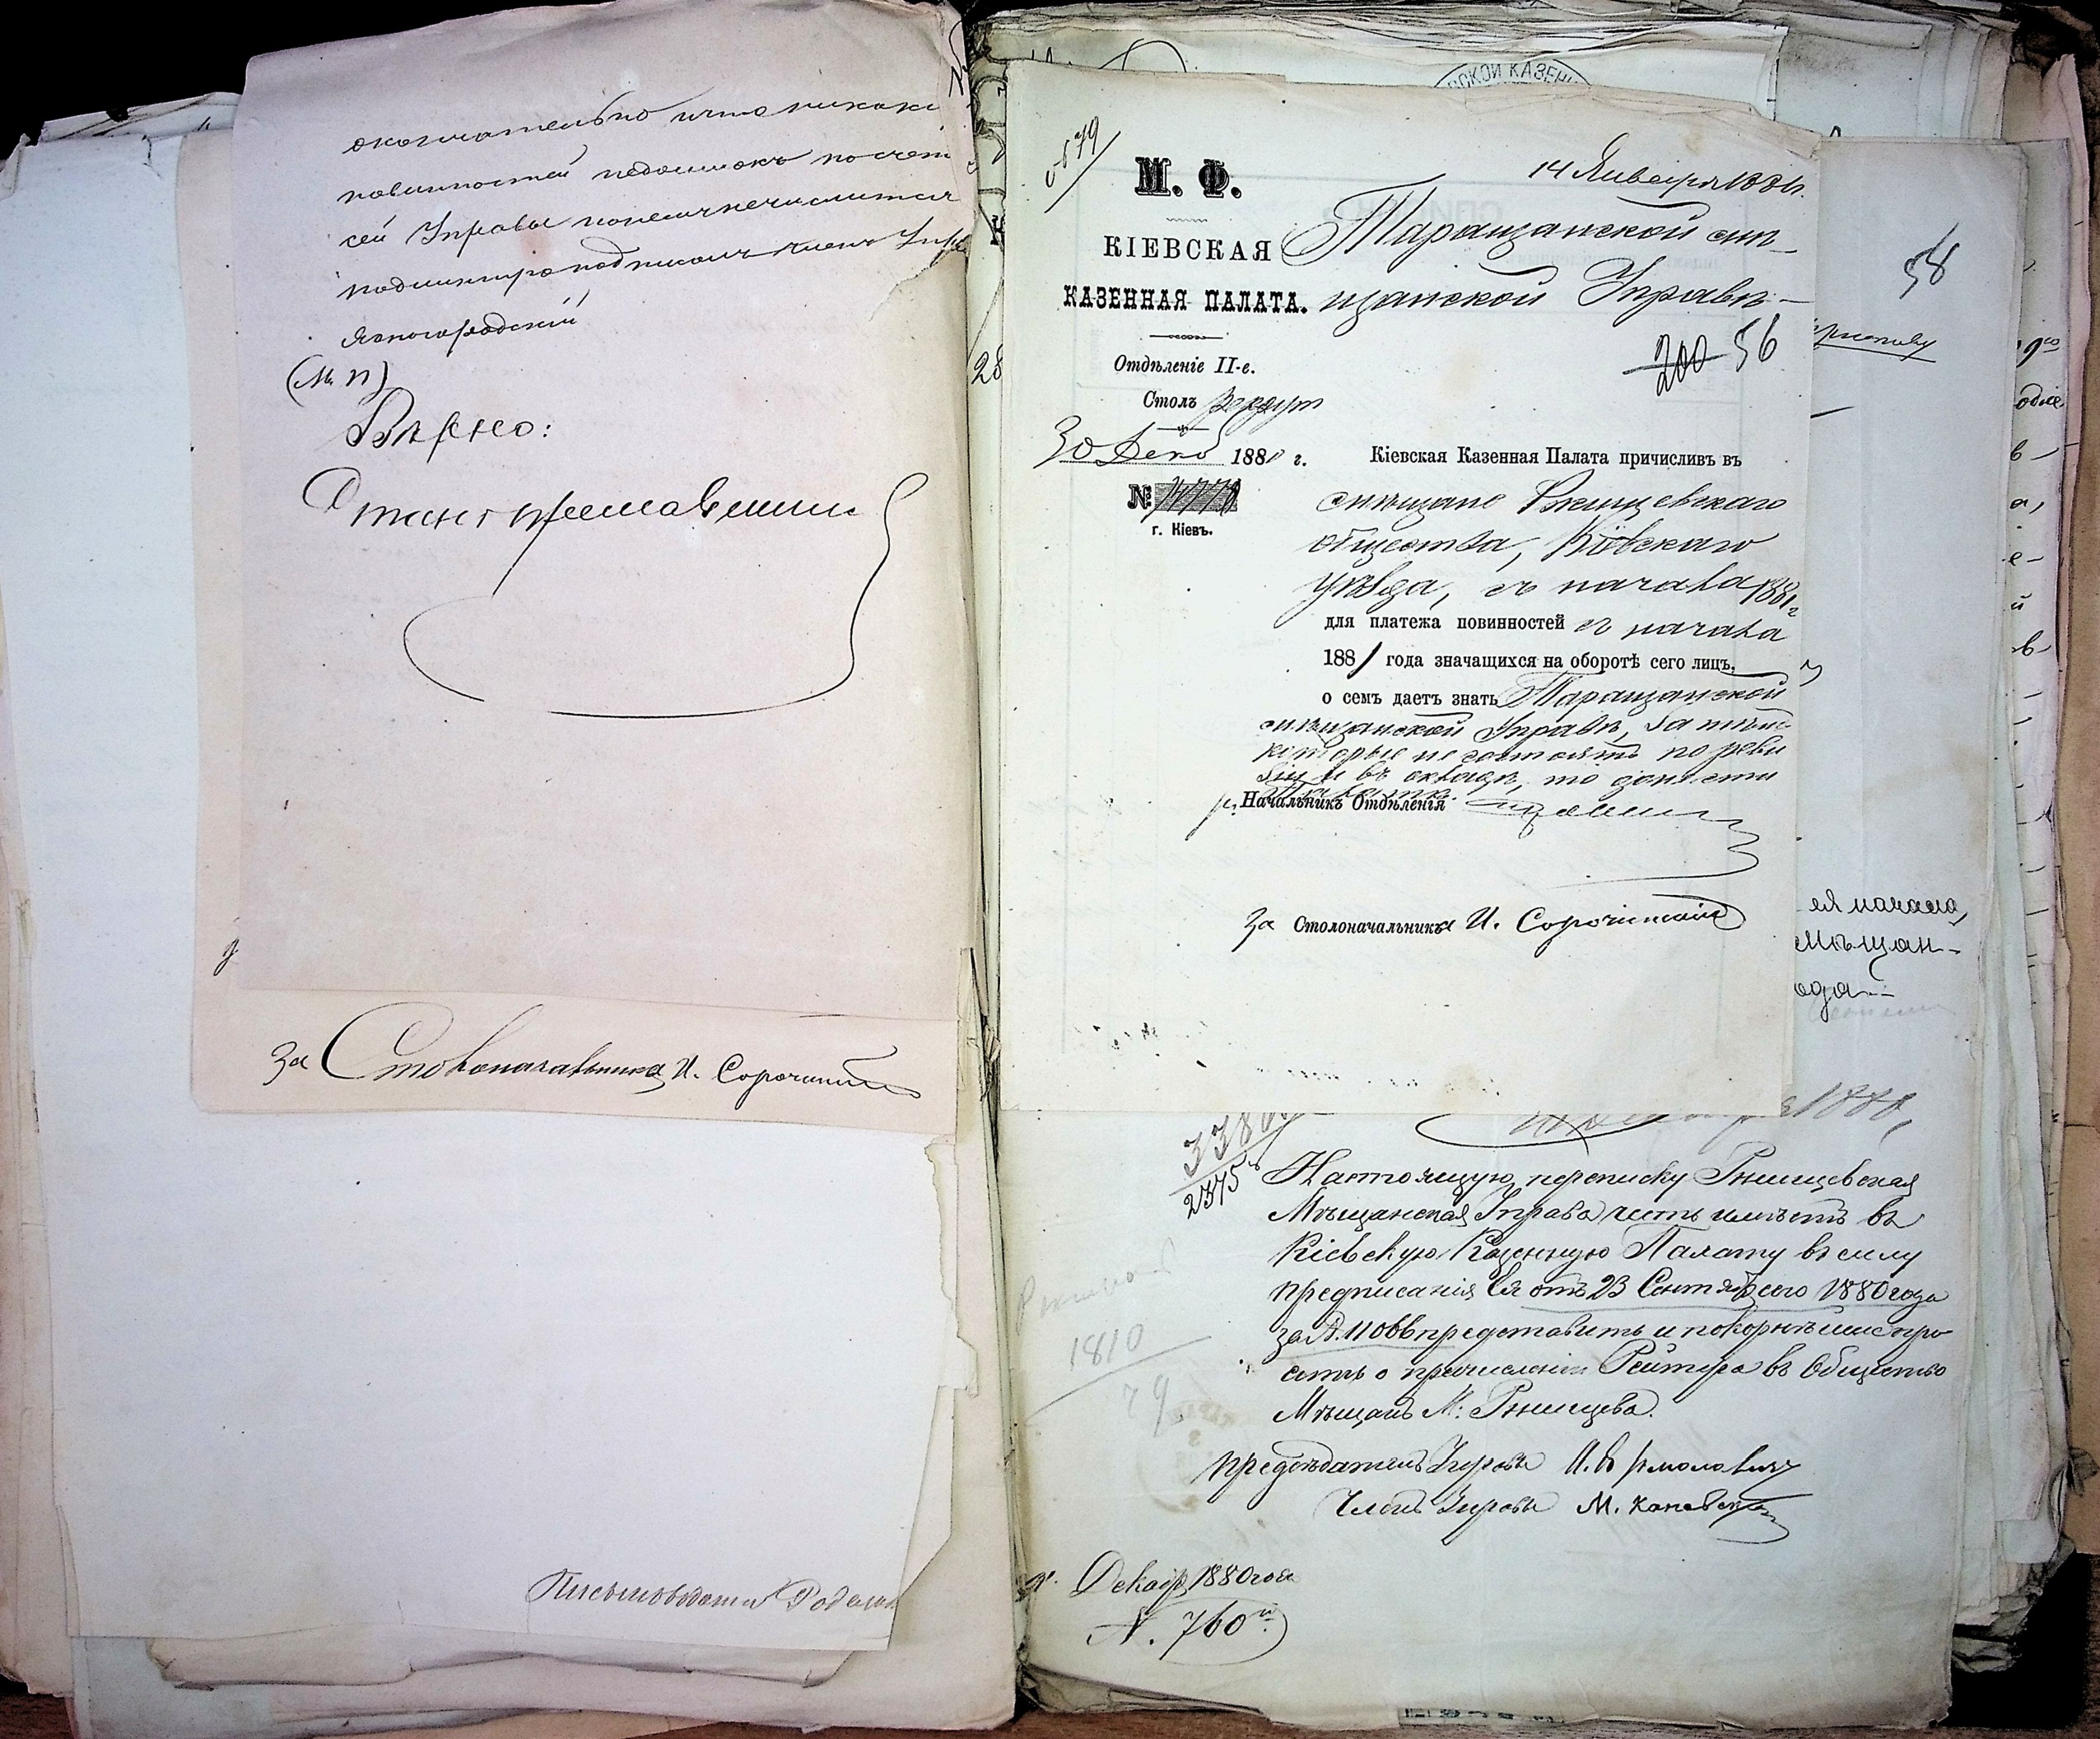 окончательно и что никаки
повинностей недоимокъ по счет
сей Управы по нем нечислится
подлинную подписалъ членъ Упр
Ясногородскій
(М. П)
Вѣрно:
За Столоначальника И. Сорочинскій
Письмоводитель
КОЙ КАЗЕН
879
М. Ф.
КІЕВСКАЯ
КАЗЕННАЯ ПАЛАТА.
Отдѣленіе II-е.
Столъ
30 Декб 1881 г.
№ 14778
г. Кіевъ.
14 Января
Таращанской мѣ-
щанской Управѣ-
200 56
Кіевская Казенная Палата причисливъ въ
мѣщане Ржищевскаго
общества, Кіевскаго
уѣзда, съ начала 1881 г
для платежа повинностей съ начала
1881 года значащихся на оборотѣ сего лицъ,
о семъ даетъ знать Таращанской
мѣщанской Управѣ, за тѣми
которые не состоятъ по реви
зіи и въ окладѣ, то донести
Палатѣ.
Начальникъ Отдѣленія
За Столоначальника И. Сорочинскій
58
ея начала,
Мѣщан-
ода
1880,
2375
Настоящую переписку Ржищевская
Мѣщанская Управа честь имѣетъ въ
Кіевскую Казенную Палату въ силу
предписанія Ея отъ 23 Сентября сего 1880 года
за N. 11066 представить и покорнѣйше про
сить о причисленіи Рейтера въ Общество
Мѣщанъ М: Ржищева.
Предсѣдатель Управы И. Ермоловичъ
Членъ Управы М. Каневскій
1810
79
Декабр 1880 года
N. 760й